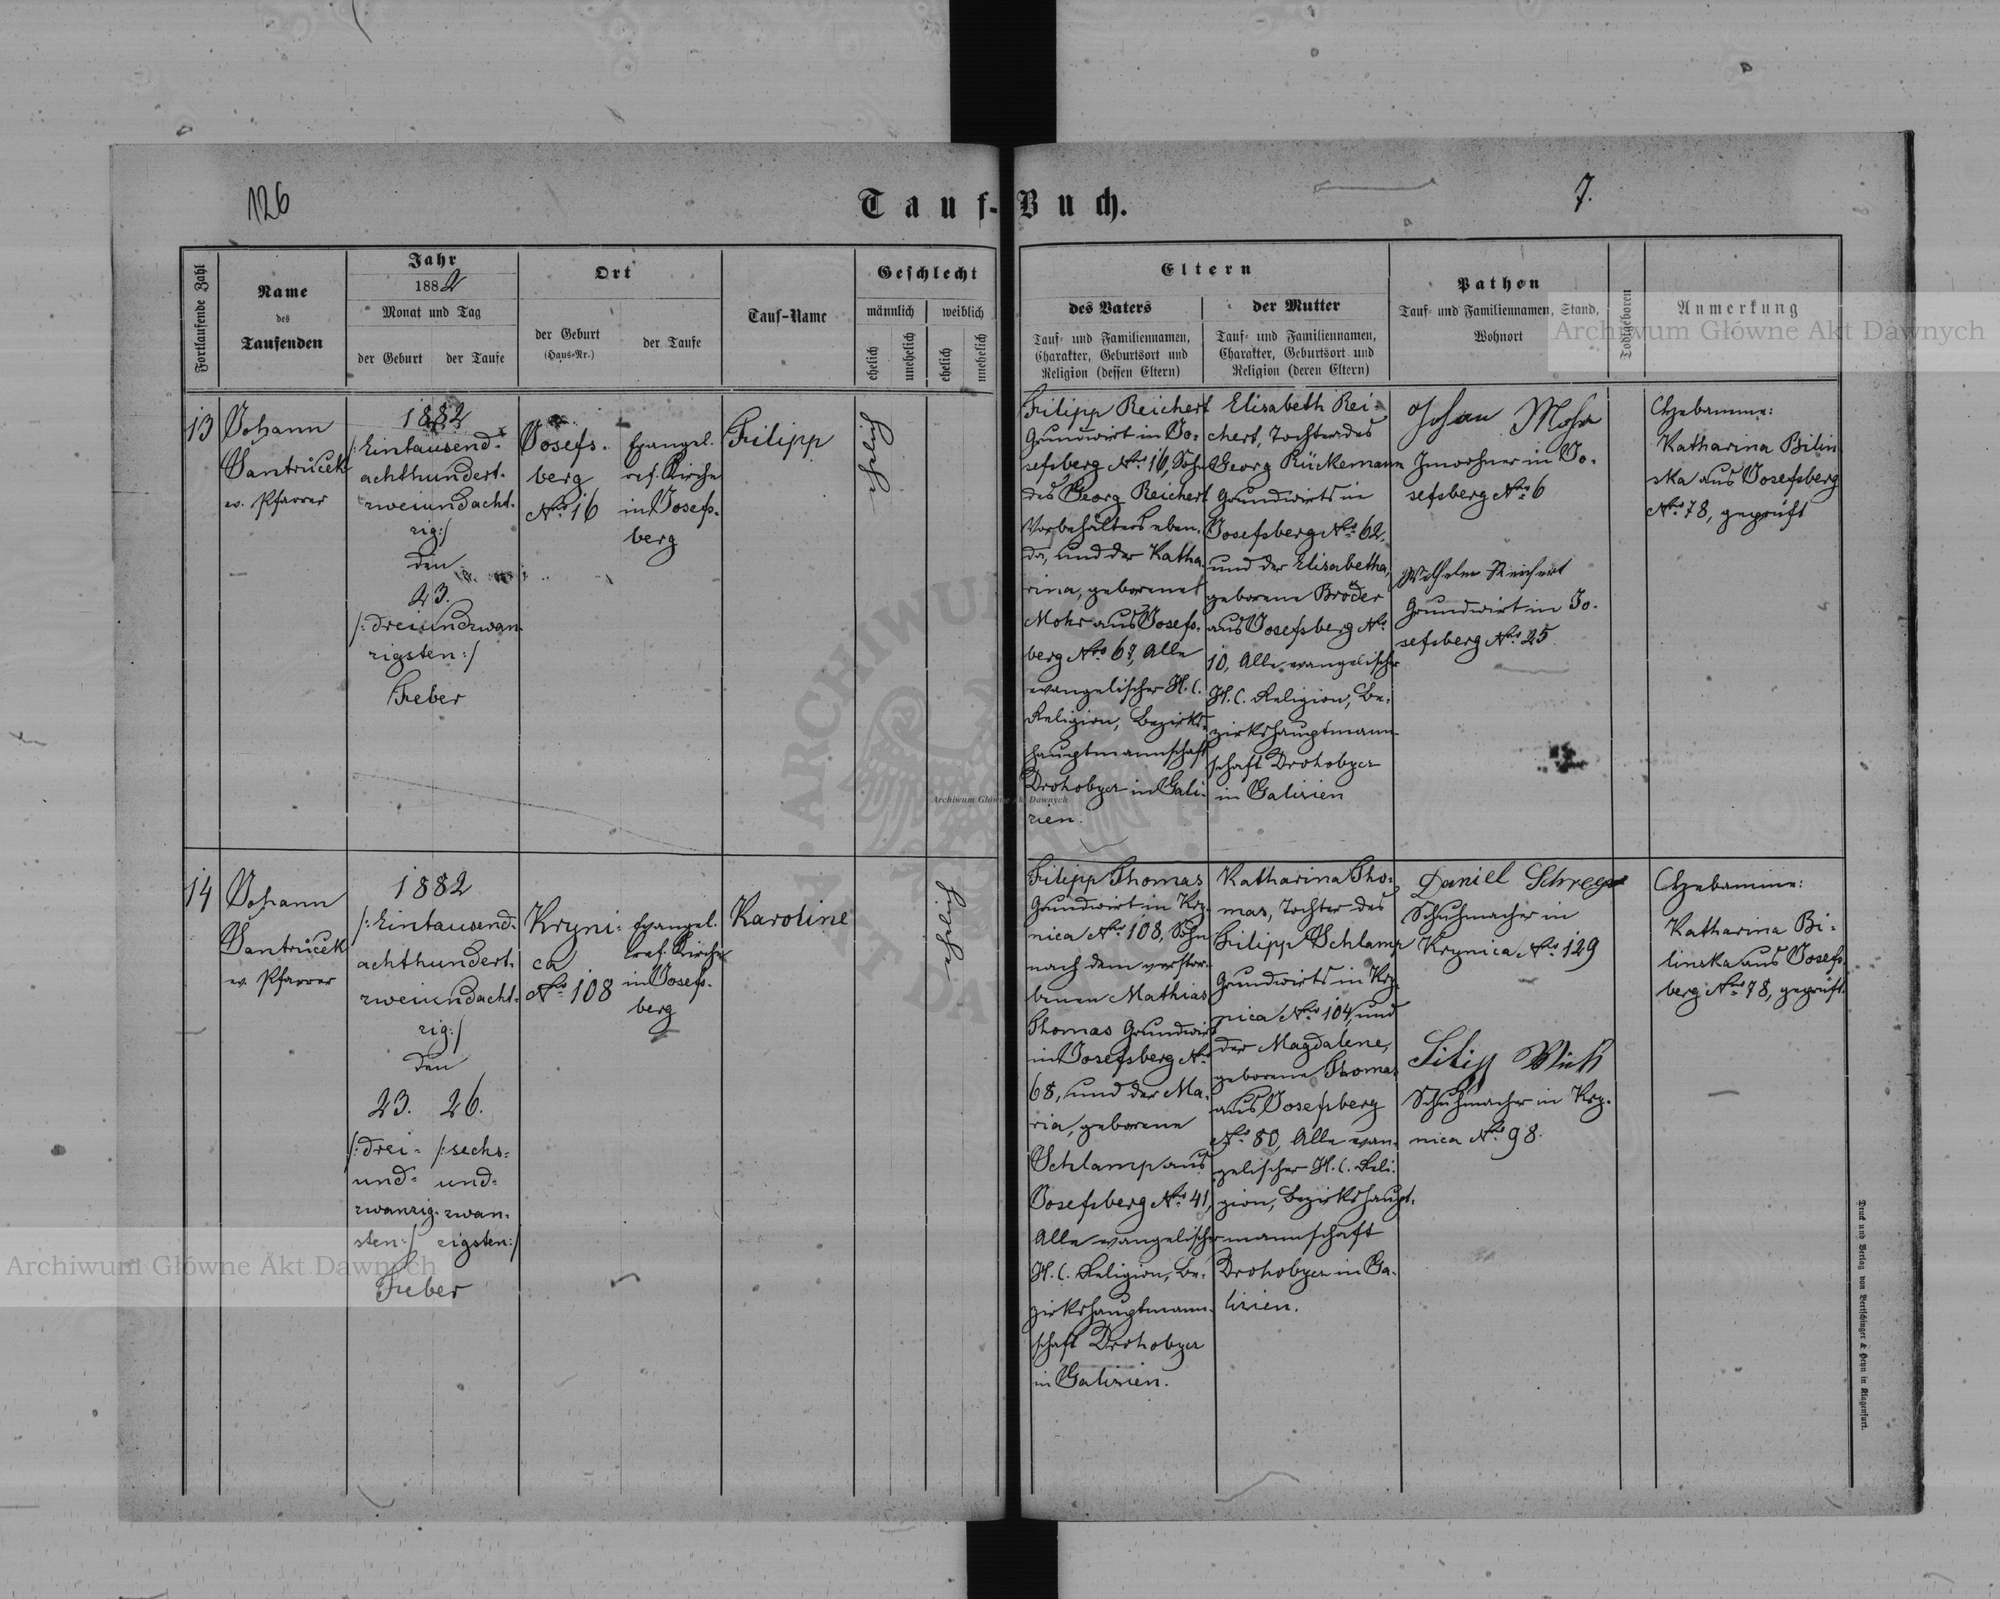 126
Tauf-Buch.
7.
Fortlaufende Zahl
Name
des
Taufenden
Jahr
1882
Monat und Tag
der Geburt
der Taufe
Ort
der Geburt
(Haus-Nr.)
der Taufe
Tauf-Name
Geschlecht
männlich
weiblich
ehelich
unehelich
ehelich
unehelich
Eltern
des Vaters
Tauf- und Familiennamen,
Charakter, Geburtsort und
Religion (dessen Eltern)
der Mutter
Tauf- und Familiennamen,
Charakter, Geburtsort und
Religion (deren Eltern)
Pathen
Tauf- und Familiennamen, Stand,
Wohnort
Todtgeboren
Anmerkung
13
Johann
Jantrucek
ev. Pfarrer
1882
/:Eintausend-
achthundert-
zweiundacht-
zig:/
den
23.
/:dreiundzwan-
zigsten:/
Feber
Josefs-
berg
No. 16
Evangel.
ref. Kirche
in Josefs-
berg
Filipp
ehelich
Filipp Reichert
Grundwirt in Jo-
sefsberg No. 16, Sohn
des Georg Reichert
Vorbehälters eben-
da, und der Katha-
rina, geborene
Mohr aus Josefs-
berg No. 67, Alle
evangelischer H. C.
Religion, Bezirks-
hauptmannschaft
Drohobycz in Gali-
zien.
Elisabeth Rei-
chert, Tochter des
Georg Rückemann
Grundwirts in
Josefsberg No. 62,
und der Elisabetha,
geborene Bröder
aus Josefsberg No.
10, Alle evangelischer
H. C. Religion, Be-
zirkshauptmann-
schaft Drohobycz
in Galizien
Johan Mohr
Inwohner in Jo-
sefsberg No. 6
Wilhelm Reichert
Grundwirt in Jo-
sefsberg No. 25
Hebamme:
Katharina Bilin
ska aus Josefsberg
No. 78, geprüft
14
Johann
Jantrucek
ev. Pfarrer
1882
/:Eintausend-
achthundert-
zweiundacht-
zig:/
den
23. 26.
/:drei- /:sechs-
und- und-
zwanzig- zwan-
sten:/ zigsten:/
Feber
Kryni-
ca
No. 108
Evangel.
ref. Kirche
in Josefs-
berg
Karoline
ehelich
Filipp Thomas
Grundwirt in Kry-
nica No. 108, Sohn
nach dem verstor-
benen Mathias
Thomas Grundwirt
in Josefsberg No.
68, und der Ma-
ria, geborene
Schlamp aus
Josefsberg No. 41,
Alle evangelischer
H. C. Religion, Be-
zirkshauptmann-
schaft Drohobycz
in Galizien.
Katharina Tho-
mas, Tochter des
Filipp Schlamp
Grundwirts in Kry-
nica No. 104, und
der Magdalene,
geborene Thomas
aus Josefsberg
No. 80, Alle evan-
gelischer H. C. Reli-
gion, Bezirkshaupt-
mannschaft
Drohobycz in Ga-
lizien.
Daniel
Schuhmacher in
Krynica No. 129
Filipp
Schuhmacher in Kry-
nica No. 98.
Hebamme:
Katharina Bi-
linska aus Josefs-
berg No. 78, geprüft.
Druck und Verlag von Bertschinger & Heyn in Klagenfurt.
Archiwum Główne Akt Dawnych
Archiwum Główne Akt Dawnych
Archiwum Główne Akt Dawnych